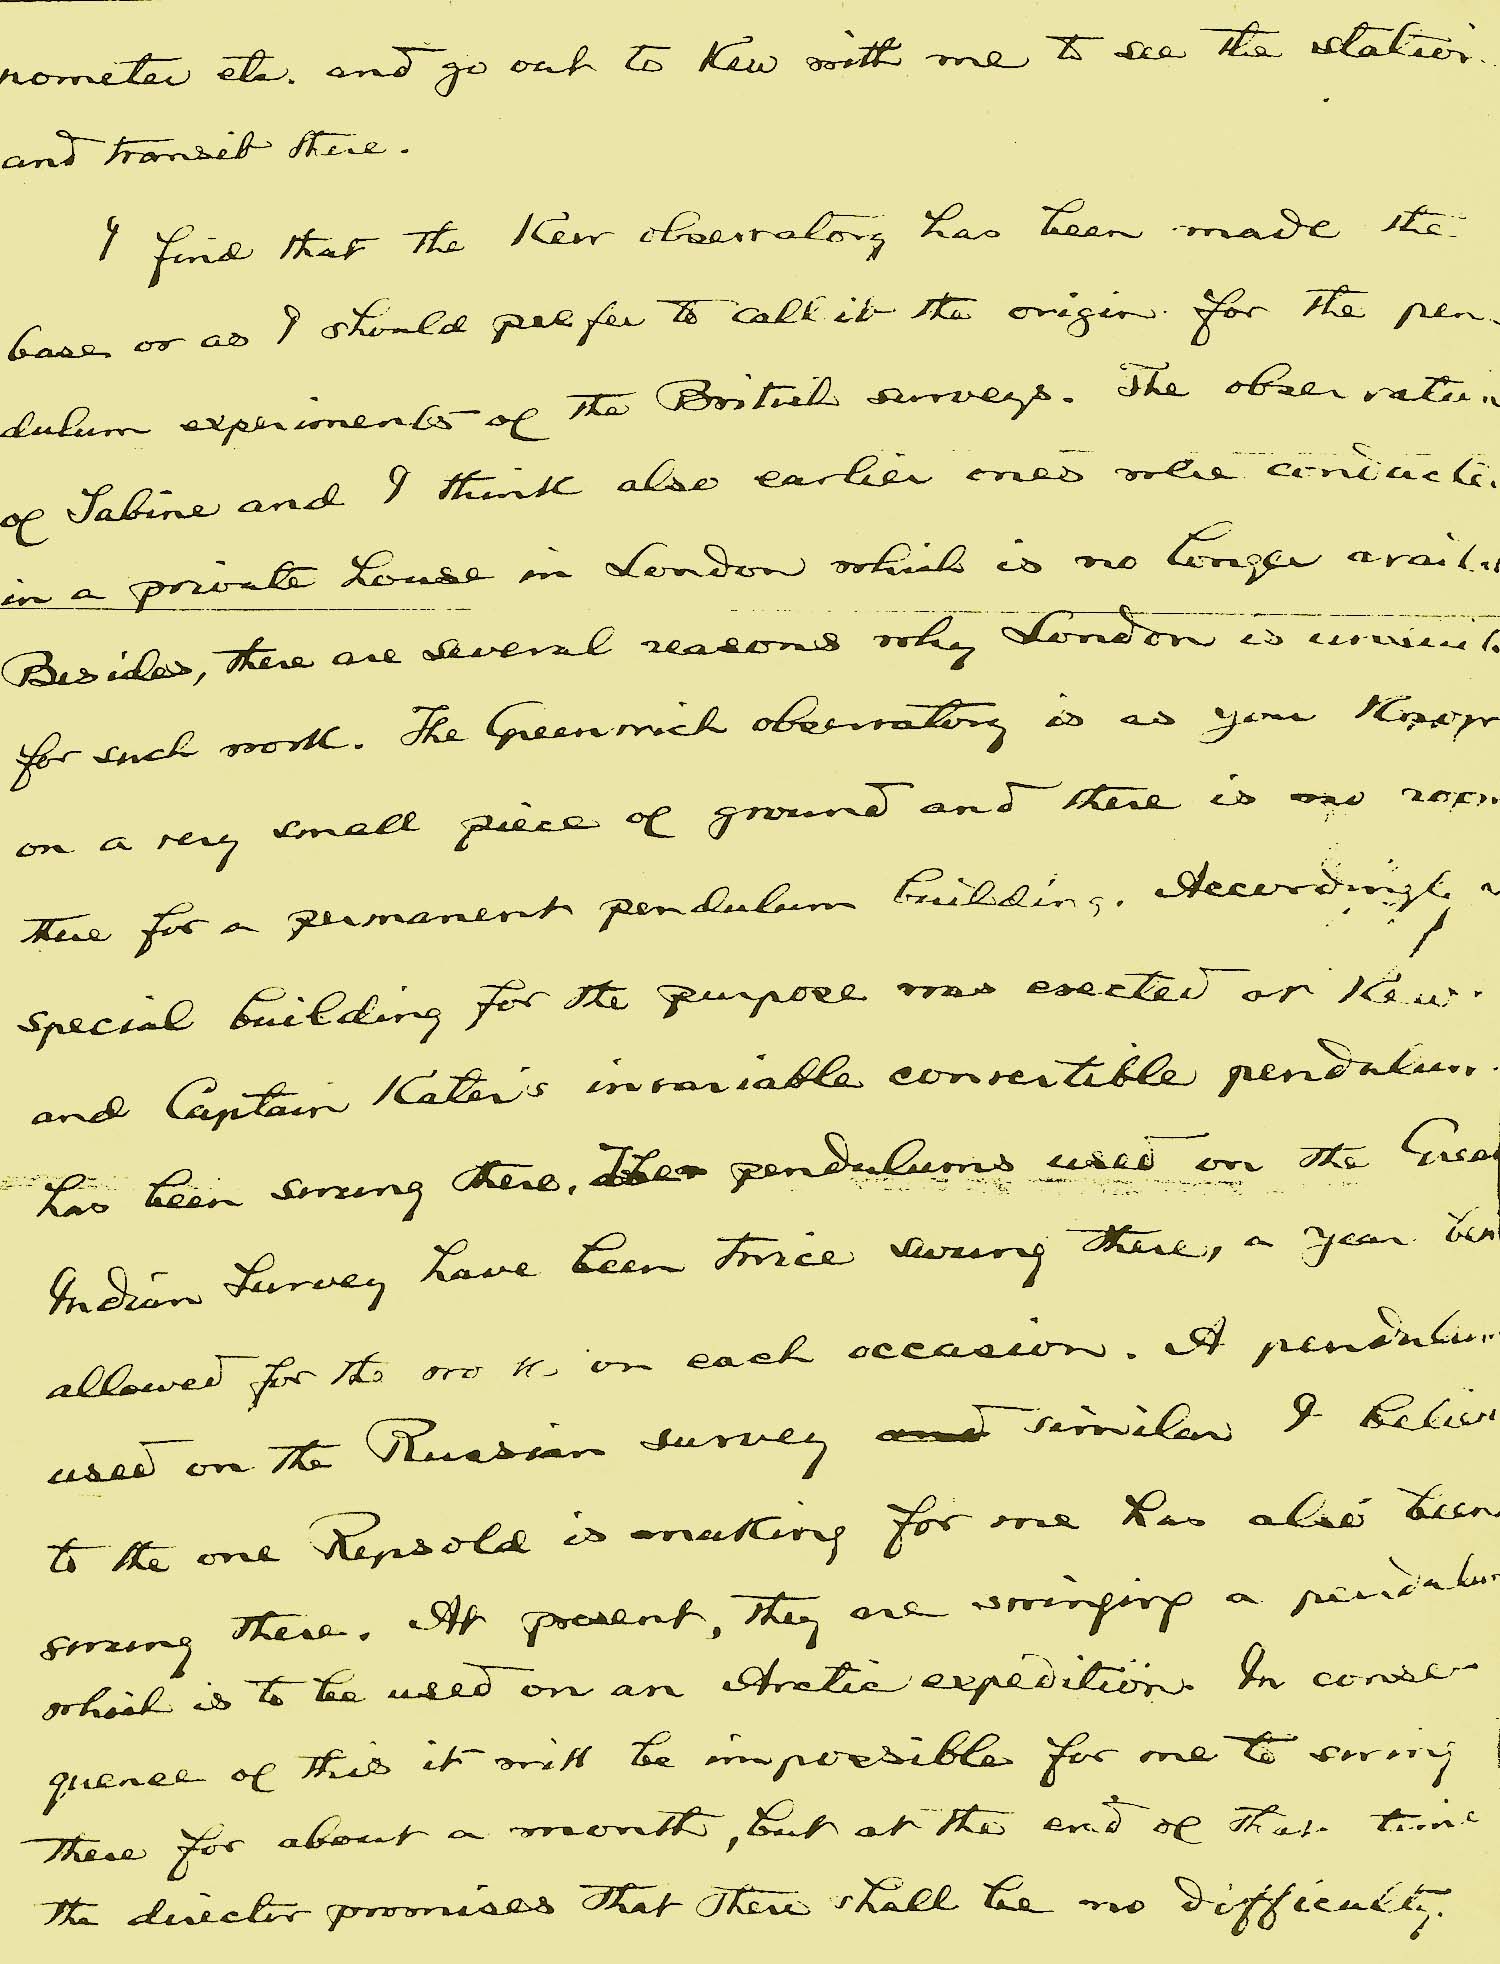 nometer etc. and go out to Kew with me to see the station
and transit there.
I find that the Kew observatory has been made the
base or as I should prefer to call it the origin for the pen-
dulum experiments of the British surveys. The observation
of Sabine and I think also earlier ones were conducte
in a private house in London which is no longer availa
Besides, there are several reasons why London is unsuit
for such work. The Greenwich observatory is as you know
on a very small piece of ground and there is no room
there for a permanent pendulum building. Accordingly
special building for the purpose was erected at Kew
and Captain Kater's invariable convertible pendulum
has been swung there. The pendulums used on the Great
Indian Survey have been twice swung there, a year bein
allowed for the work on each occasion. A pendulum
used on the Russian survey and similar I believe
to the one Repsold is making for me has also been
swung there. At present, they are swinging a pendulum
which is to be used on an Arctic expedition. In conse-
quence of this it will be impossible for me to swing
there for about a month, but at the end of that time
the director promises that there shall be no difficulty.